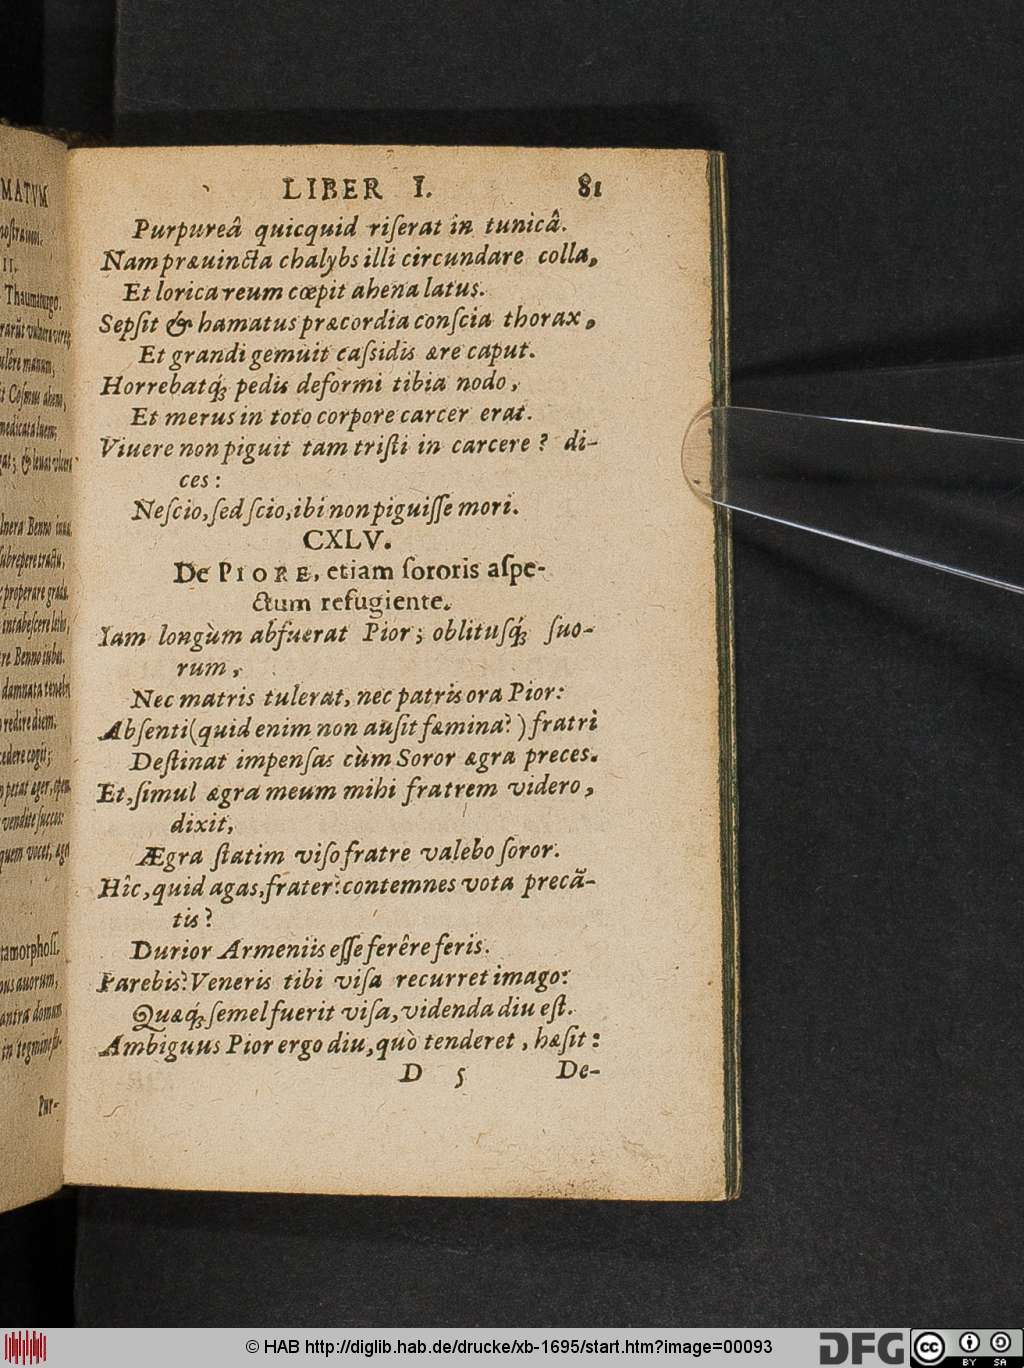 MATVM
II.
Thaumaturgo.
medicata luem;
lnera Benno
subrepere tractu,
properare gradu.
intabescere
re Benno iubet.
redire diem.
cedere cogit;
vendite succos:
quem vocat,
tamorphoſ.
antra domum
Pur-
LIBER I. 81
Purpureâ quicquid riſerat in tunicâ.
Nam præuincta chalybs illi circundare colla,
Et lorica reum cœpit ahena latus.
Sepſit & hamatus præcordia conſcia thorax,
Et grandi gemuit caſſidis ære caput.
Horrebatq́; pedis deformi tibia nodo,
Et merus in toto corpore carcer erat.
Viuere non piguit tam triſti in carcere? di-
ces:
Neſcio, ſed ſcio, ibi non piguiſſe mori.
CXLV.
De PIORE, etiam ſororis aſpe-
ctum refugiente.
Iam longùm abfuerat Pior; oblitusq́; ſuo-
rum,
Nec matris tulerat, nec patris ora Pior:
Abſenti (quid enim non auſit fæmina?) fratri
Deſtinat impenſas cùm Soror ægra preces.
Et, ſimul ægra meum mihi fratrem videro,
dixit,
Ægra ſtatim viſo fratre valebo ſoror.
Hîc, quid agas, frater? contemnes vota precã-
tis?
Durior Armeniis eſſe ferêre feris.
Parebis? Veneris tibi viſa recurret imago:
Quæq́; ſemel fuerit viſa, videnda diu eſt.
Ambiguus Pior ergo diu, quò tenderet, hæſit:
D 5 De-
© HAB http://diglib.hab.de/drucke/xb-1695/start.htm?image=00093
DFG
cc BY SA